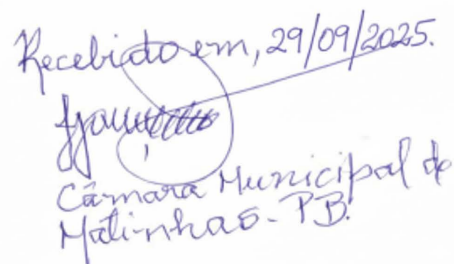 Recebido em, 29/09/2025.
Câmara Municipal de
Matinhas - PB.